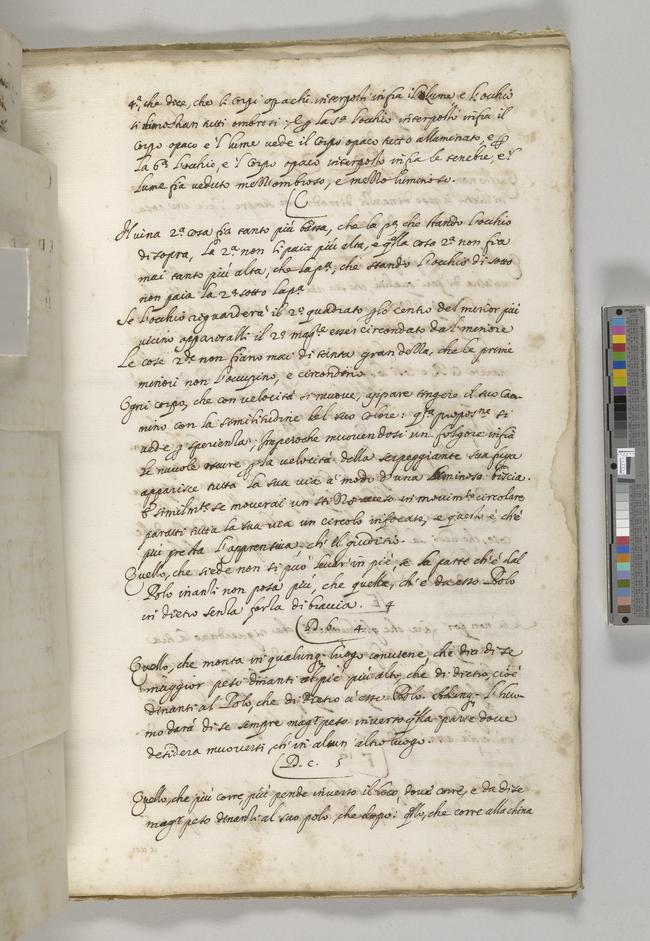 4ª che dice, che li corpi opachi interposti infra il lume e l'occhio
si dimostran tutti ombrosi; E la 5ª l'occhio interposto infra il
corpo opaco e 'l lume vede il corpo opaco tutto alluminato, e
La 6ª l'occhio, e 'l corpo opaco interposto infra le tenebre, e 'l
lume fia veduto mezz'ombroso, e mezzo luminoso.
C
Niuna 2ª cosa fia tanto più bassa, che la pª, che stando l'occhio
di sopra, la 2ª non ti paia più alta, e qlla cosa 2ª non fia
mai tanto più alta, che la pª, che stando l'occhio di sotto
non paia la 2ª sotto la pª
Se l'occhio riguarderà il 2º quadrato p lo centro del minor più
vicino apparoralli il 2º magre esser circondato dal minore
Le cose 2de non fiano mai di tanta grandezza, che le prime
minori non l'occupino, e circondino
Ogni corpo, che con velocità si muove, appare tingere il suo cam-
mino con la similitudine del suo colore: qsta proposne si
vede p sperienza; Imperoche muovendosi un folgore infrà
le nuvole oscure p la velocità della serpeggiante sua fuga
apparisce tutta la sua via à modo d'una luminosa biscia.
E similmte se moverai un stizzo acceso in movimto circolare
paratti tutta la sua via un circolo infocato, e questo è che
più presta l'apprensiva, ch'il giuditio.
Quello, che siede non si può levar in piè, se la parte ch'è dal
Polo inanti non posa più, che quella, ch'è da esso Polo
in dietro senza forza di braccia. 4
D. b. 4
Quello, che monta in qualunq luogo conviene, che dia di se
maggior peso dinanti al piè più alto, che di dietro, cioè
dinanti al Polo, che di dietro à esso Polo. Adunq l'huo-
mo darà di se sempre magr peso inverso qlla parte dove
desidera muoversi, ch'in alcun altro luogo.
D. c. 5
Quello, che più corre, più pende inverso il loco, dove corre, e da di se
magr peso dinanti al suo polo, che dopo: qllo, che corre alla china